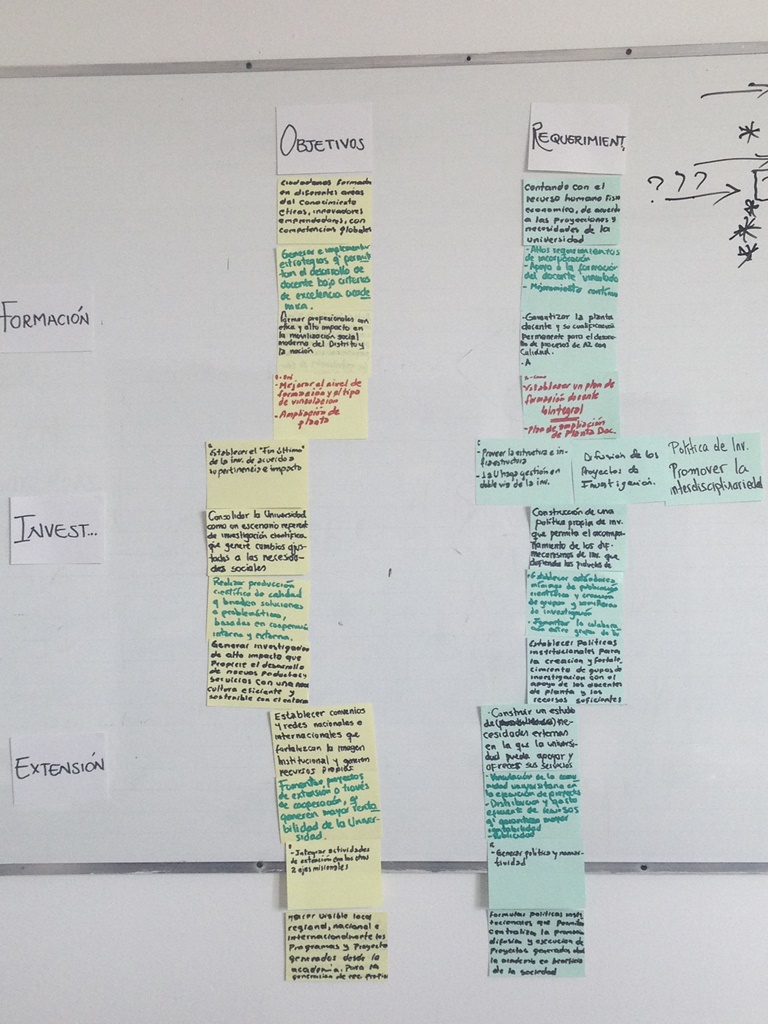 OBJETIVOS
REQUERIMIENT.
Ciudadanos formados
en diferentes areas
del conocimiento
eticos, innovadores
emprendedores, con
competencias globales
Contando con el
recurso humano fisico
economico, de acuerdo
a las proyecciones y
necesidades de la
universidad
???
FORMACIÓN
Generar e implementar
estrategias q' permi
tan el desarrollo de
docente bajo criterios
de excelencia acade
mica.
- Altos requerimientos
de incorporación
- Apoyo a la formación
del docente vinculado
- Mejoramiento continuo
Formar profesionales con
etica y alto impacto en
la movilización social
moderna del Distrito y
la nación
- Garantizar la planta
docente y su cualificación
permanente para el desarro
llo de procesos de A2 con
Calidad.
- A
- Mejorar el nivel de
formación y el tipo de
vinculacion
- Ampliación de
planta
- Establecer un plan de
formación docente
integral
- Plan de ampliación
de Planta Doc.
INVEST...
Establecer el "Fin último"
de la inv. de acuerdo a
su pertinencia e impacto
- Proveer la estructura e in-
fraestructura
- La U haga gestión en
doble via de la inv.
Difusion de los
Proyectos de
Investigación.
Política de Inv.
Promover la
interdisciplinariedad
Consolidar la Universidad
como un escenario referente
de investigación científica
que genere cambios ajus
tados a las necesida-
des sociales
Construcción de una
política propia de inv.
que permita el acompa-
ñamiento de los dif.
mecanismos de inv. que
Realizar producción
científica de calidad
y brinden soluciones
a problemáticas,
basadas en cooperación
interna y externa.
- Establecer estándares
mínimos de publicación
científica y creación
de grupos y semilleros
de investigación
- Fomentar la colabora
ción entre grupos de
Generar investigación
de alto impacto que
Propicie el desarrollo
de nuevos Productos y
Servicios con una
cultura eficiente y
sostenible con el entorno
Establecer Políticas
institucionales para
la creacion y fortale
cimiento de grupos de
investigacion con el
apoyo de los docentes
de planta y los
recursos suficientes
EXTENSIÓN
Establecer convenios
y redes nacionales e
internacionales que
fortalezcan la imagen
Institucional y generen
recursos Propios
- Construir un estudio
de necesidades externas
en la que la univer-
sidad pueda apoyar y
ofrecer sus servicios
Fomentar proyectos
de extensión a través
de cooperación, q'
generen mayor renta
bilidad de la Univer-
sidad.
- Vinculación de la comu
nidad universitaria en
la ejecución de proyectos
- Distribución y gasto
eficiente de recursos
q' garantizen mayor
rentabilidad
- Publicidad
- Integrar actividades
de extensión con los otros
2 ejes misionales
- Generar política y norma-
tividad
Hacer visible local
regional, nacional e
internacionalmente los
Programas y Proyectos
generados desde la
academia. Para la
generacion de rec. propios
Formular políticas insti
tucionales que permitan
centralizar la promoción
difusion y ejecucion de
Proyectos generados desde
la academia en beneficio
de la sociedad